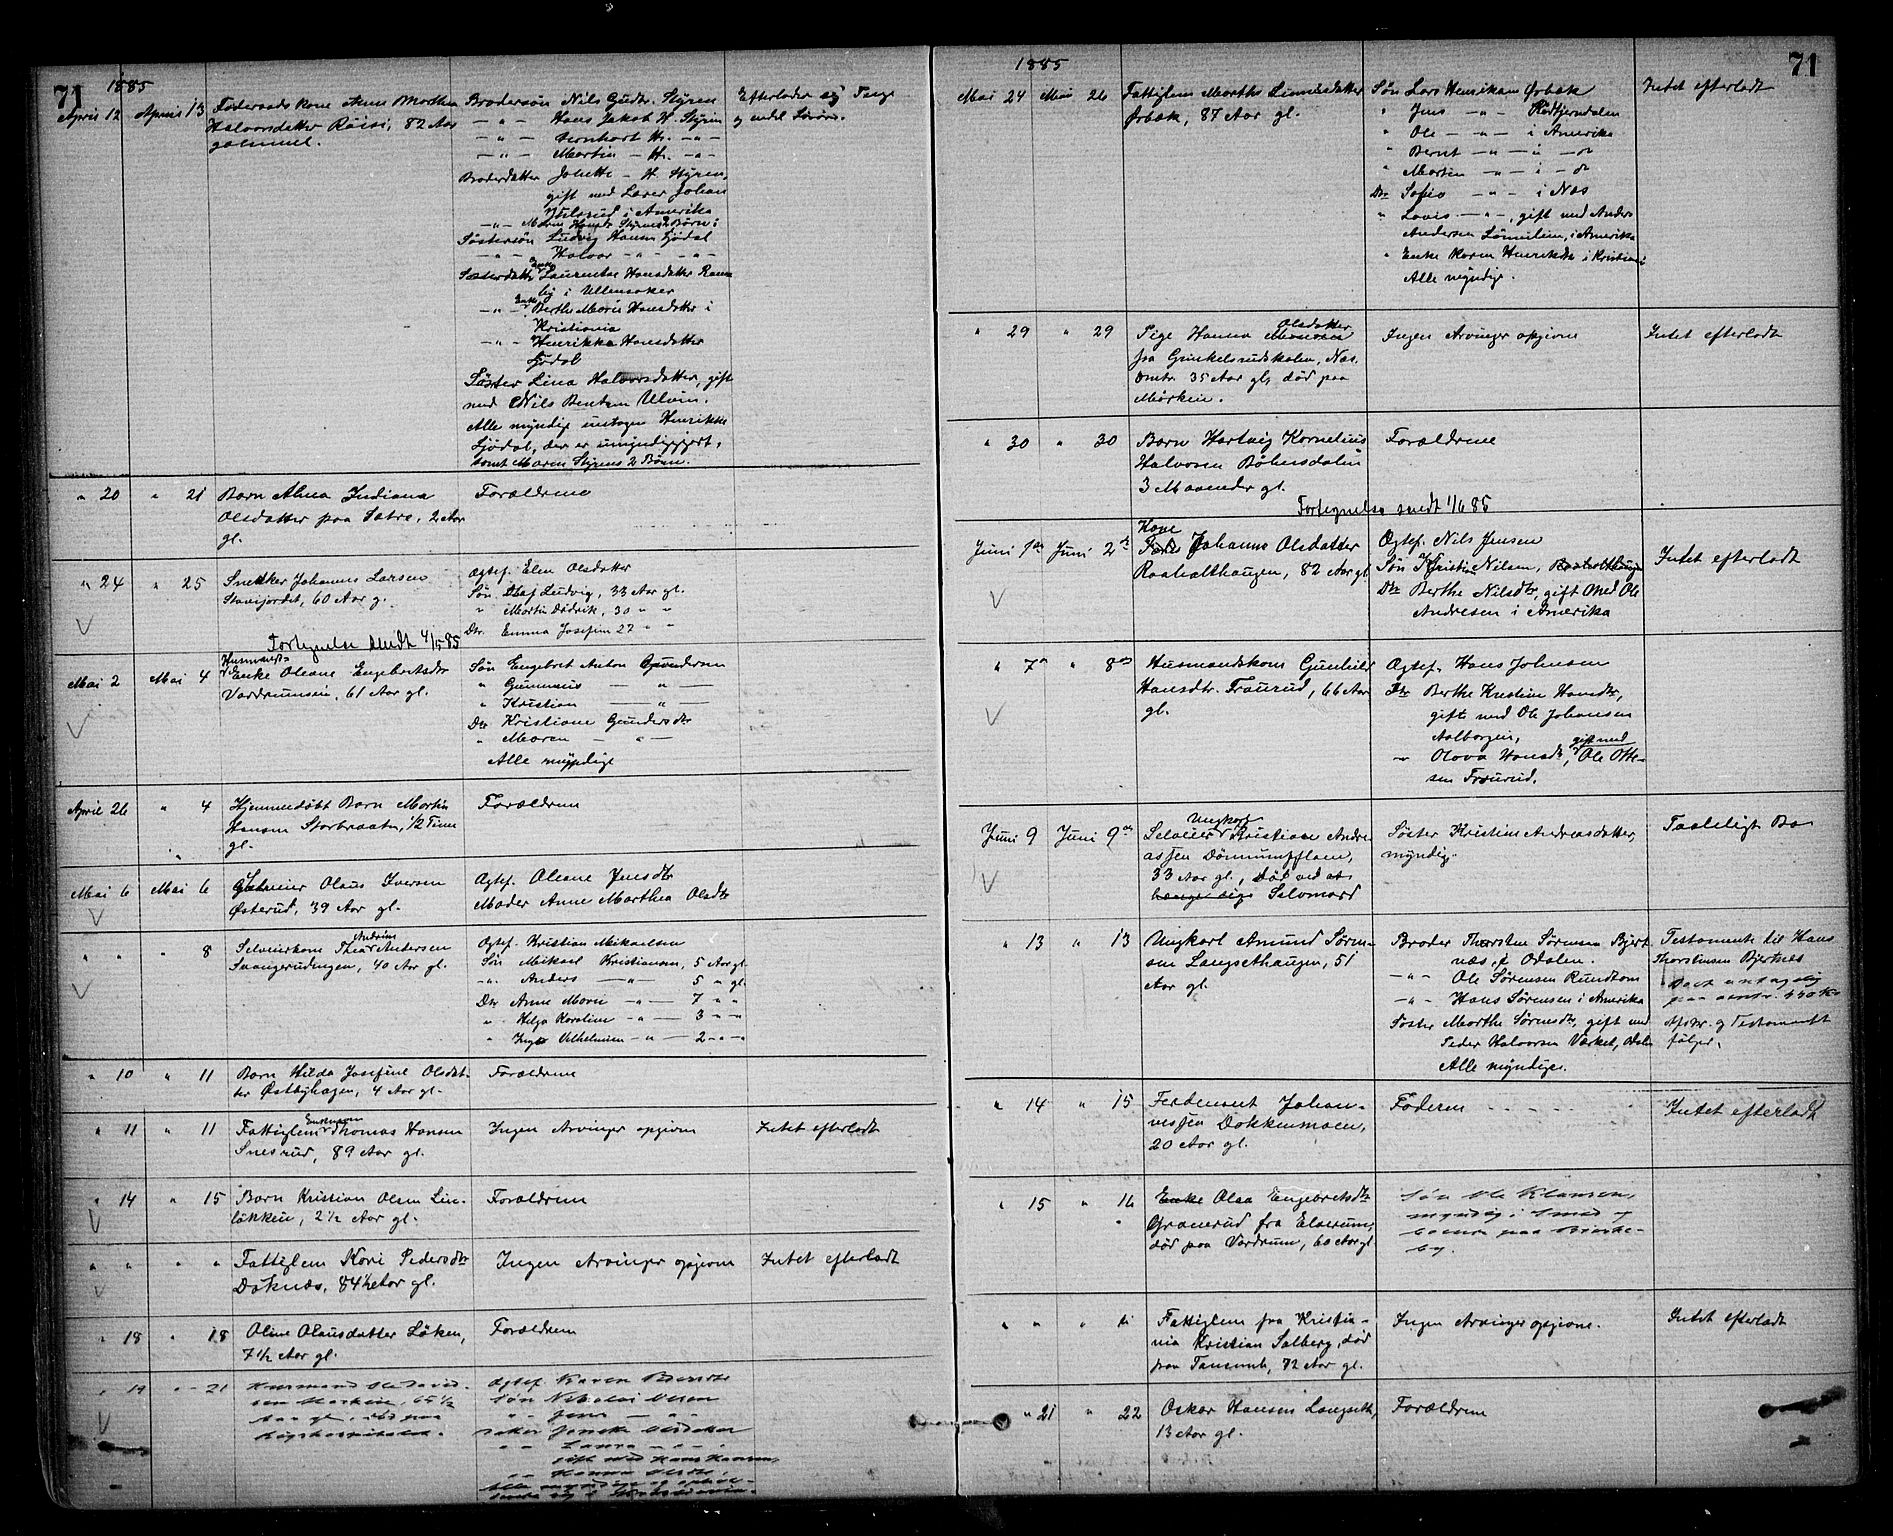 71
1885
April 12 April 13 Føderaads kone Anne Marthea
Halvorsdatter Röisi, 82 Aar
gammel.
Brodersøn Nils Gudbr. Styren
— " — Hans Jakob H. Styren
— " — Bernhart H. — " —
— " — Martin — H. — " —
Broderdatter Johette — H. Styren,
gift med Lars Johan
i Amerika
— " — Maren Styrens 2 Børn i
Søstersøn Ludvig Hansen Fjødal
— " — Halvor — " — — " —
Søsterdatter Enke Laurentse Hansdatter
i Ullensaker
— " — Enke Berthe Marie Hansdatter i
Kristiania
— " — Henrikka Hansdatter
Fjödal
Søster Lina Halvorsdatter, gift
med Nils Bentsen Ulvin.
Alle myndige untagen Henrikka
Fjödal, der er umyndiggjort,
samt Maren Styrens 2 Børn.
Efterlader sig Penge
og endel Løsøre.
" 20 " 21 Barn Alma Indiana
Olsdatter paa Sætre, 2 Aar
gl.
Forældrene
" 24 " 25 Snekker Johannes Larsen
Stavifjordet, 60 Aar g.
Ægtef. Elen Olsdatter
Søn Olaf Ludvig, 33 Aar gl.
" Martin Didrik, 30 " "
Dtr. Emma Josefine 27 " "
Fortegnelse sendt 4/5 85
Mai 2 Mai 4 Husmands-
Enke Oleane Engebretsdtr
Vardrumseie, 61 Aar gl.
Søn Engebret Anton Gundersen
" Gunnerius — " —
" Kristian — " —
Dtr Kristiane Gundersdtr
" Maren — " —
Alle myndige
April 26 " 4 Hjemmedøbt Barn Martin
Hansen Storbraaten, 1/2 Time
gl.
Forældrene
Mai 6 Mai 6 Selveier Olaus Iversen
Østerud, 39 Aar gl.
Ægtef. Oleane Jensdtr
Moder Anne Marthea Olsdtr
" " " 8 Selveierkone Thea Andrine Andersen
Svangerudengen, 40 Aar gl.
Ægtef. Kristian Mikaelsen
Søn Mikael Kristiansen, 5 Aar gl.
— " — Anders — " — 5 " gl.
Dtr Anne Marie — " — 7 " "
" Helga Karoline — " — 3 " "
" Inga Vilhelmine — " — 2 — " — "
" 10 " 11 Barn Hilda Josefine Olsdat-
ter Østbyhagen, 4 Aar gl.
Forældrene
" 11 " 11 Fattiglem Enkemann Thomas Hansen
Snesrud, 89 Aar gl.
Ingen Arvinger opgivne
Intet efterladt
" 14 " 15 Barn Kristian Olsen Lin-
løkken, 2 1/2 Aar gl.
Forældrene
" " " " Fattiglem Kari Pedersdtr
Døknæs, 84 1/2 Aar gl.
Ingen Arvinger opgivne
Intet efterladt
" 18 " 18 Oline Olausdatter Løken,
7 1/2 Aar gl.
Forældrene
" 19 " 21 Husmand Ole
65 1/2
Aar gl. død paa
Rigshospitalet.
Ægtef. Karen
Søn Nikolai Olsen
" Jens — " —
Datter
" Laura — " —
gift med Hans Hansen,
" Hanna
Alle myndige og ophol-
dende sig i
1885
71
Mai 24 Mai 26 Fattiglem Marthe Simensdatter
Ørbæk, 87 Aar gl.
Søn Lars Henriksen Ørbæk
" Jens — " — Rødtjerndalen
" Ole — " — i Amerika
" Bernt — " — i — do
" Martin — " — i — do
Dtr Sofie — " — i Næs
" Lovise — " —, gift med Anders
Andersen i Amerika
" Enke Karen Henriksdtr i Kristiania
Alle myndige.
Intet efterladt
" 29 " 29 Pige Hanna Olsdatter
fra Grinkelsrudskolen, Næs.
Omtr. 35 Aar gl, død paa
Mørken.
Ingen Arvinger opgivne
Intet efterladt
" 30 " 30 Barn Hartvig Kornelius
Halvorsen Böhersdalen
3 Maaneder gl.
Forældrene
Fortegnelse sendt 1/6 85
Juni 1ste Juni 2de Kone Johanne Olsdatter
Raaholthaugen, 82 Aar gl
Ægtef. Nils Jensen
Søn Kristian Nilsen, Raaholthaugen
Dtr Berthe Nilsdtr, gift med Ole
Andresen i Amerika
Intet efterladt
" 7de " 8de Husmandskone Gunhild
Hansdtr. Traurud, 66 Aar
gl.
Ægtef. Hans Johnsen
Dtr Berthe Kristine Hansdtr,
gift med Ole Johansen
Aalborgen,
" Olava Hansdtr, gift med Ole Otte-
sen Traurud.
Juni 9 Juni 9de Selveier Ungkarl Kristian Andre-
assen Dønnumflaen,
33 Aar gl, død ved at
hænge sig Selvmord
Søster Kristine Andreasdatter,
myndig.
Taaleligt Bo
" 13 " 13 Ungkarl Amund Søren-
sen Langsethaugen, 51
Aar gl.
Broder Thorsten Sørensen Bjert-
næs, i Odalen.
— " — Ole Sørensen Rundtom
— " — Hans Sørensen i Amerika
Søster Marthe Sørensdtr, gift med
Peder Halvorsen Værket, Odalen
Alle myndige.
Testamente til Hans
Thorstensen Bjertnæs
Boet antagelig
paa omtr. 440 Kr
Afskr. af Testamentet
følger.
" 14 " 15 Ferdenant Johan-
nessen Dokkenmoen,
20 Aar gl.
Faderen
Intet efterladt
" 15 " 16 Enke Olea Engebretsdtr
Granerud fra Elverum,
død paa Vardrum, 60 Aar gl
Søn Ole Klausen,
myndig, Smed og
boende paa
" " " " Fattiglem fra Kristia-
nia Kristian Solberg, død
paa Tansum, 72 Aar gl.
Ingen Arvinger opgivne.
Intet efterladt
" 21 " 22 Oskar Hansen Langseth,
13 Aar gl.
Forældrene